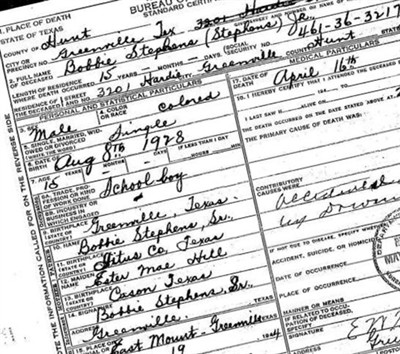 BUREAU O
STANDARD CERTIF
1. PLACE OF DEATH
STATE OF TEXAS
COUNTY OF Hunt
PRECINCT NO. Greenville Tex 3201 Hardie
2. FULL NAME OF DECEASED Bobbie Stephens (Stephens) Jr.
LENGTH OF RESIDENCE WHERE DEATH OCCURRED 15 YEARS - MONTHS - DAYS. SOCIAL SECURITY NO. 461-36-3217
RESIDENCE OF THE DECEASED STREET 3201 Hardie Greenville Hunt
PERSONAL AND STATISTICAL PARTICULARS
3. SEX Male colored
5. SINGLE, MARRIED, WIDOWED OR DIVORCED (WRITE THE WORD) Single
6. DATE OF BIRTH Aug 8th 1928
7. AGE YEARS MONTHS DAYS IF LESS THAN 1 DAY
15 HOURS MIN
8A. TRADE, PROFESSION OR KIND OF WORK DONE School boy
8B. INDUSTRY OR BUSINESS IN WHICH ENGAGED
9. BIRTHPLACE (STATE OR Greenville, Texas
10. NAME Bobbie Stephens, Sr.
11. BIRTHPLACE Titus Co, Texas
12. MAIDEN NAME Ester Mae Hill
13. BIRTHPLACE Cason Texas
14. SIGNATURE Bobbie Stephens, Sr.
ADDRESS Greenville, TEXAS
15. PLACE OF BURIAL East Mount - Greenville TEXAS
19 194
MEDICAL PARTICULARS
17. DATE OF DEATH April 16th
18. I HEREBY CERTIFY THAT I ATTENDED THE DECEASED
I LAST SAW H ALIVE ON
THE DEATH OCCURRED ON THE DATE STATED ABOVE
THE PRIMARY CAUSE OF DEATH WAS:
CONTRIBUTORY CAUSES WERE Accidental
by Drown
IF NOT DUE TO DISEASE, SPECIFY WHETHER:
ACCIDENT, SUICIDE, OR HOMICIDE
DATE OF OCCURRENCE
PLACE OF OCCURRENCE
MANNER OR MEANS
IF RELATED TO OCCUPATION OF DECEASED, SPECIFY
SIGNATURE
THE INFORMATION CALLED FOR ON THE REVERSE SIDE